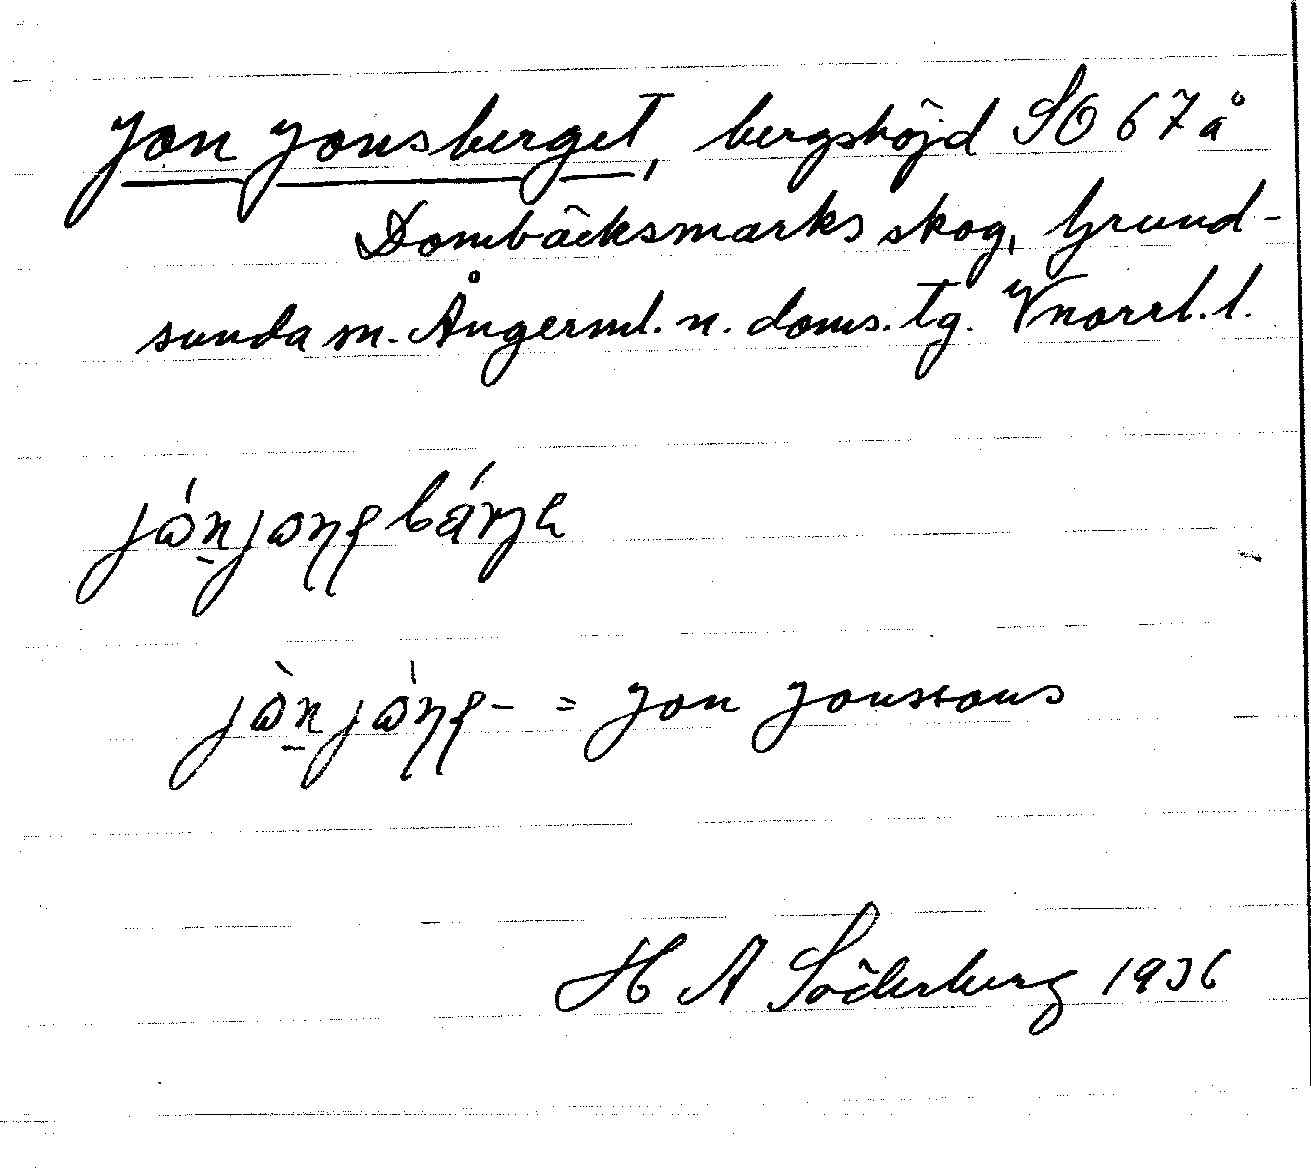 Jon Jonsberget, bergshöjd SO 67 å
Dombäcksmarks skog, Grund-
sunda sn. Ångerml. n. doms. tg. Vnorrl. l.
jón̠jonsbárje
jòn̠jóns- = Jon Jonssons
H A Söderberg 1936